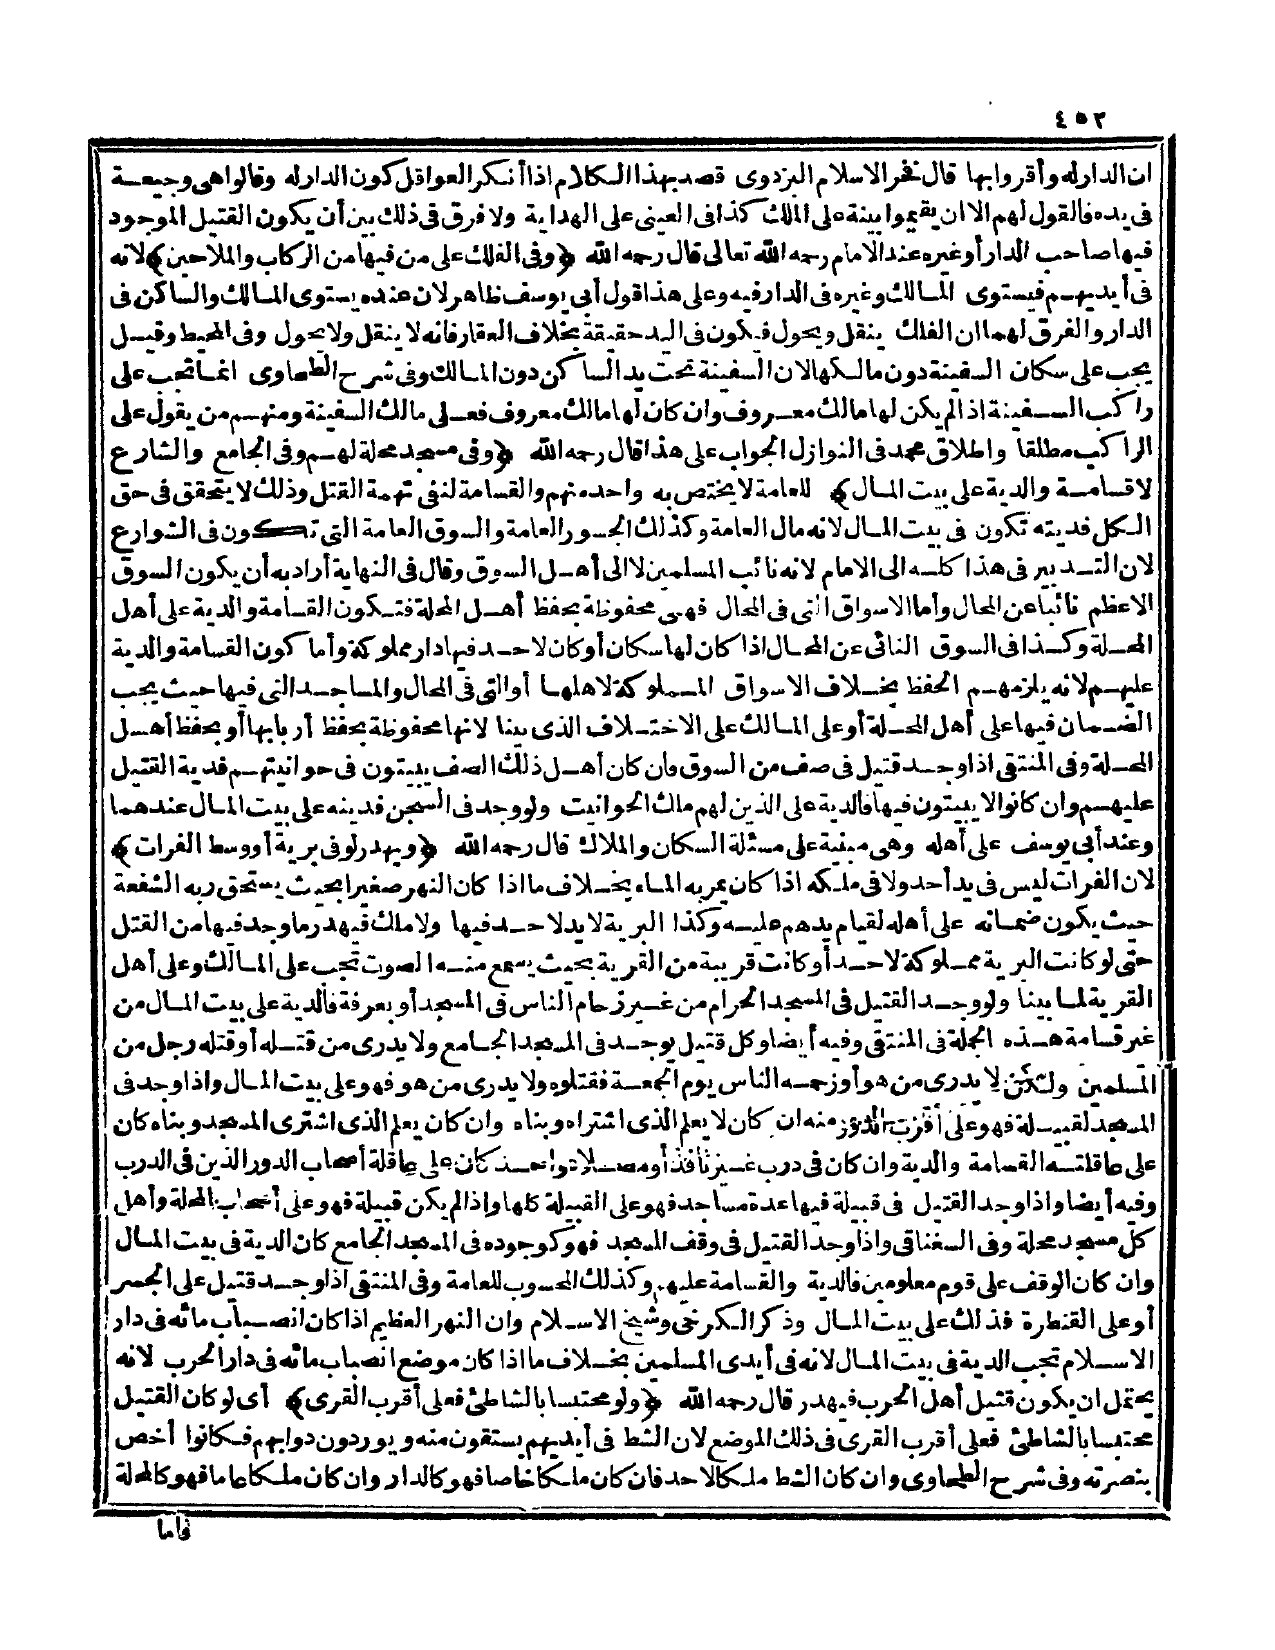 ٤٥٢
ان الدار له وأقروا بها قال فخر الاسلام البزدوى قصد بهذا الكلام اذا أنكر العواقل كون الدار له وقالوا هى وديعة
فى يده فالقول لهم الا ان يقيموا بينة على الملك كذا فى العينى على الهداية ولا فرق فى ذلك بين أن يكون القتيل الموجود
فيها صاحب الدار أو غيره عند الامام رحمه الله تعالى قال رحمه الله ﴿وفى الفلك على من فيها من الركاب والملاحين﴾ لانه
فى أيديهم فيستوى المالك وغيره فى الدار فيه وعلى هذا قول أبى يوسف ظاهر لان عنده يستوى المالك والساكن فى
الدار والفرق لهما ان الفلك ينقل ويحول فيكون فى اليد حقيقة بخلاف العقار فانه لا ينقل ولا يحول وفى المحيط وقيل
يجب على سكان السفينة دون مالكها لان السفينة تحت يد الساكن دون المالك وفى شرح الطحاوى انما تجب على
راكب السفينة اذا لم يكن لها مالك معروف وان كان لها مالك معروف فعلى مالك السفينة ومنهم من يقول على
الراكب مطلقا واطلاق محمد فى النوازل الجواب على هذا قال رحمه الله ﴿وفى مسجد محلة لهم وفى الجامع والشارع
لا قسامة والدية على بيت المال﴾ للعامة لا يختص به واحد منهم والقسامة لنفى تهمة القتل وذلك لا يتحقق فى حق
الكل فديته تكون فى بيت المال لانه مال العامة وكذلك الجسور العامة والسوق العامة التى تكون فى الشوارع
لان التدبير فى هذا كله الى الامام لانه نائب المسلمين لا الى أهل السوق وقال فى النهاية أراد به أن يكون السوق
الاعظم نائبا عن المحال وأما الاسواق التى فى المحال فهى محفوظة بحفظ أهل المحلة فتكون القسامة والدية على أهل
المحلة وكذا فى السوق النائى عن المحال اذا كان لها سكان أو كان لاحد فيها دار مملوكة وأما كون القسامة والدية
عليهم لانه يلزمهم الحفظ بخلاف الاسواق المملوكة لاهلها أو التى فى المحال والمساجد التى فيها حيث يجب
الضمان فيها على أهل المحلة أو على المالك على الاختلاف الذى بينا لانها محفوظة بحفظ أربابها أو بحفظ أهل
المحلة وفى المنتقى اذا وجد قتيل فى صف من السوق فان كان أهل ذلك الصف يبيتون فى حوانيتهم فدية القتيل
عليهم وان كانوا لا يبيتون فيها فالدية على الذين لهم ملك الحوانيت ولو وجد فى السجن فديته على بيت المال عندهما
وعند أبى يوسف على أهله وهى مبنية على مسئلة السكان والملاك قال رحمه الله ﴿ويهدر لو فى برية أو وسط الفرات﴾
لان الفرات ليس فى يد أحد ولا فى ملكه اذا كان يمر به الماء بخلاف ما اذا كان النهر صغيرا بحيث يستحق ربه الشفعة
حيث يكون ضمانه على أهله لقيام يدهم عليه وكذا البرية لا يد لاحد فيها ولا ملك فيهدر ما وجد فيها من القتل
حتى لو كانت البرية مملوكة لاحد أو كانت قريبة من القرية بحيث يسمع منه الصوت تجب على المالك وعلى أهل
القرية لما بينا ولو وجد القتيل فى المسجد الحرام من غير زحام الناس فى المسجد أو بعرفة فالدية على بيت المال من
غير قسامة هذه الجملة فى المنتقى وفيه أيضا وكل قتيل يوجد فى المسجد الجامع ولا يدرى من قتله أو قتله رجل من
المسلمين ولكن لا يدرى من هو أو زحمه الناس يوم الجمعة فقتلوه ولا يدرى من هو فهو على بيت المال واذا وجد فى
المسجد لقبيلة فهو على أقرب الدور منه ان كان لا يعلم الذى اشتراه وبناه وان كان يعلم الذى اشترى المسجد وبناه كان
على عاقلته القسامة والدية وان كان فى درب غير نافذ أو مصلاه واحد كان على عاقلة أصحاب الدور الذين فى الدرب
وفيه أيضا واذا وجد القتيل فى قبيلة فيها عدة مساجد فهو على القبيلة كلها واذا لم يكن قبيلة فهو على أصحاب المحلة وأهل
كل مسجد محلة وفى السغناقى واذا وجد القتيل فى وقف المسجد فهو كوجوده فى المسجد الجامع كان الدية فى بيت المال
وان كان الوقف على قوم معلومين فالدية والقسامة عليهم وكذلك المحسوب للعامة وفى المنتقى اذا وجد قتيل على الجسر
أو على القنطرة فذلك على بيت المال وذكر الكرخى وشيخ الاسلام وان النهر العظيم اذا كان انصباب مائه فى دار
الاسلام تجب الدية فى بيت المال لانه فى أيدى المسلمين بخلاف ما اذا كان موضع انصباب مائه فى دار الحرب لانه
يحتمل ان يكون قتيل أهل الحرب فيهدر قال رحمه الله ﴿ولو محتبسا بالشاطئ فعلى أقرب القرى﴾ أى لو كان القتيل
محتبسا بالشاطئ فعلى أقرب القرى فى ذلك الموضع لان الشط فى أيديهم يستقون منه ويوردون دوابهم فكانوا أخص
بنصرته وفى شرح الطحاوى وان كان الشط ملكا لاحد فان كان ملكا خاصا فهو كالدار وان كان ملكا عاما فهو كالمحلة
فاما